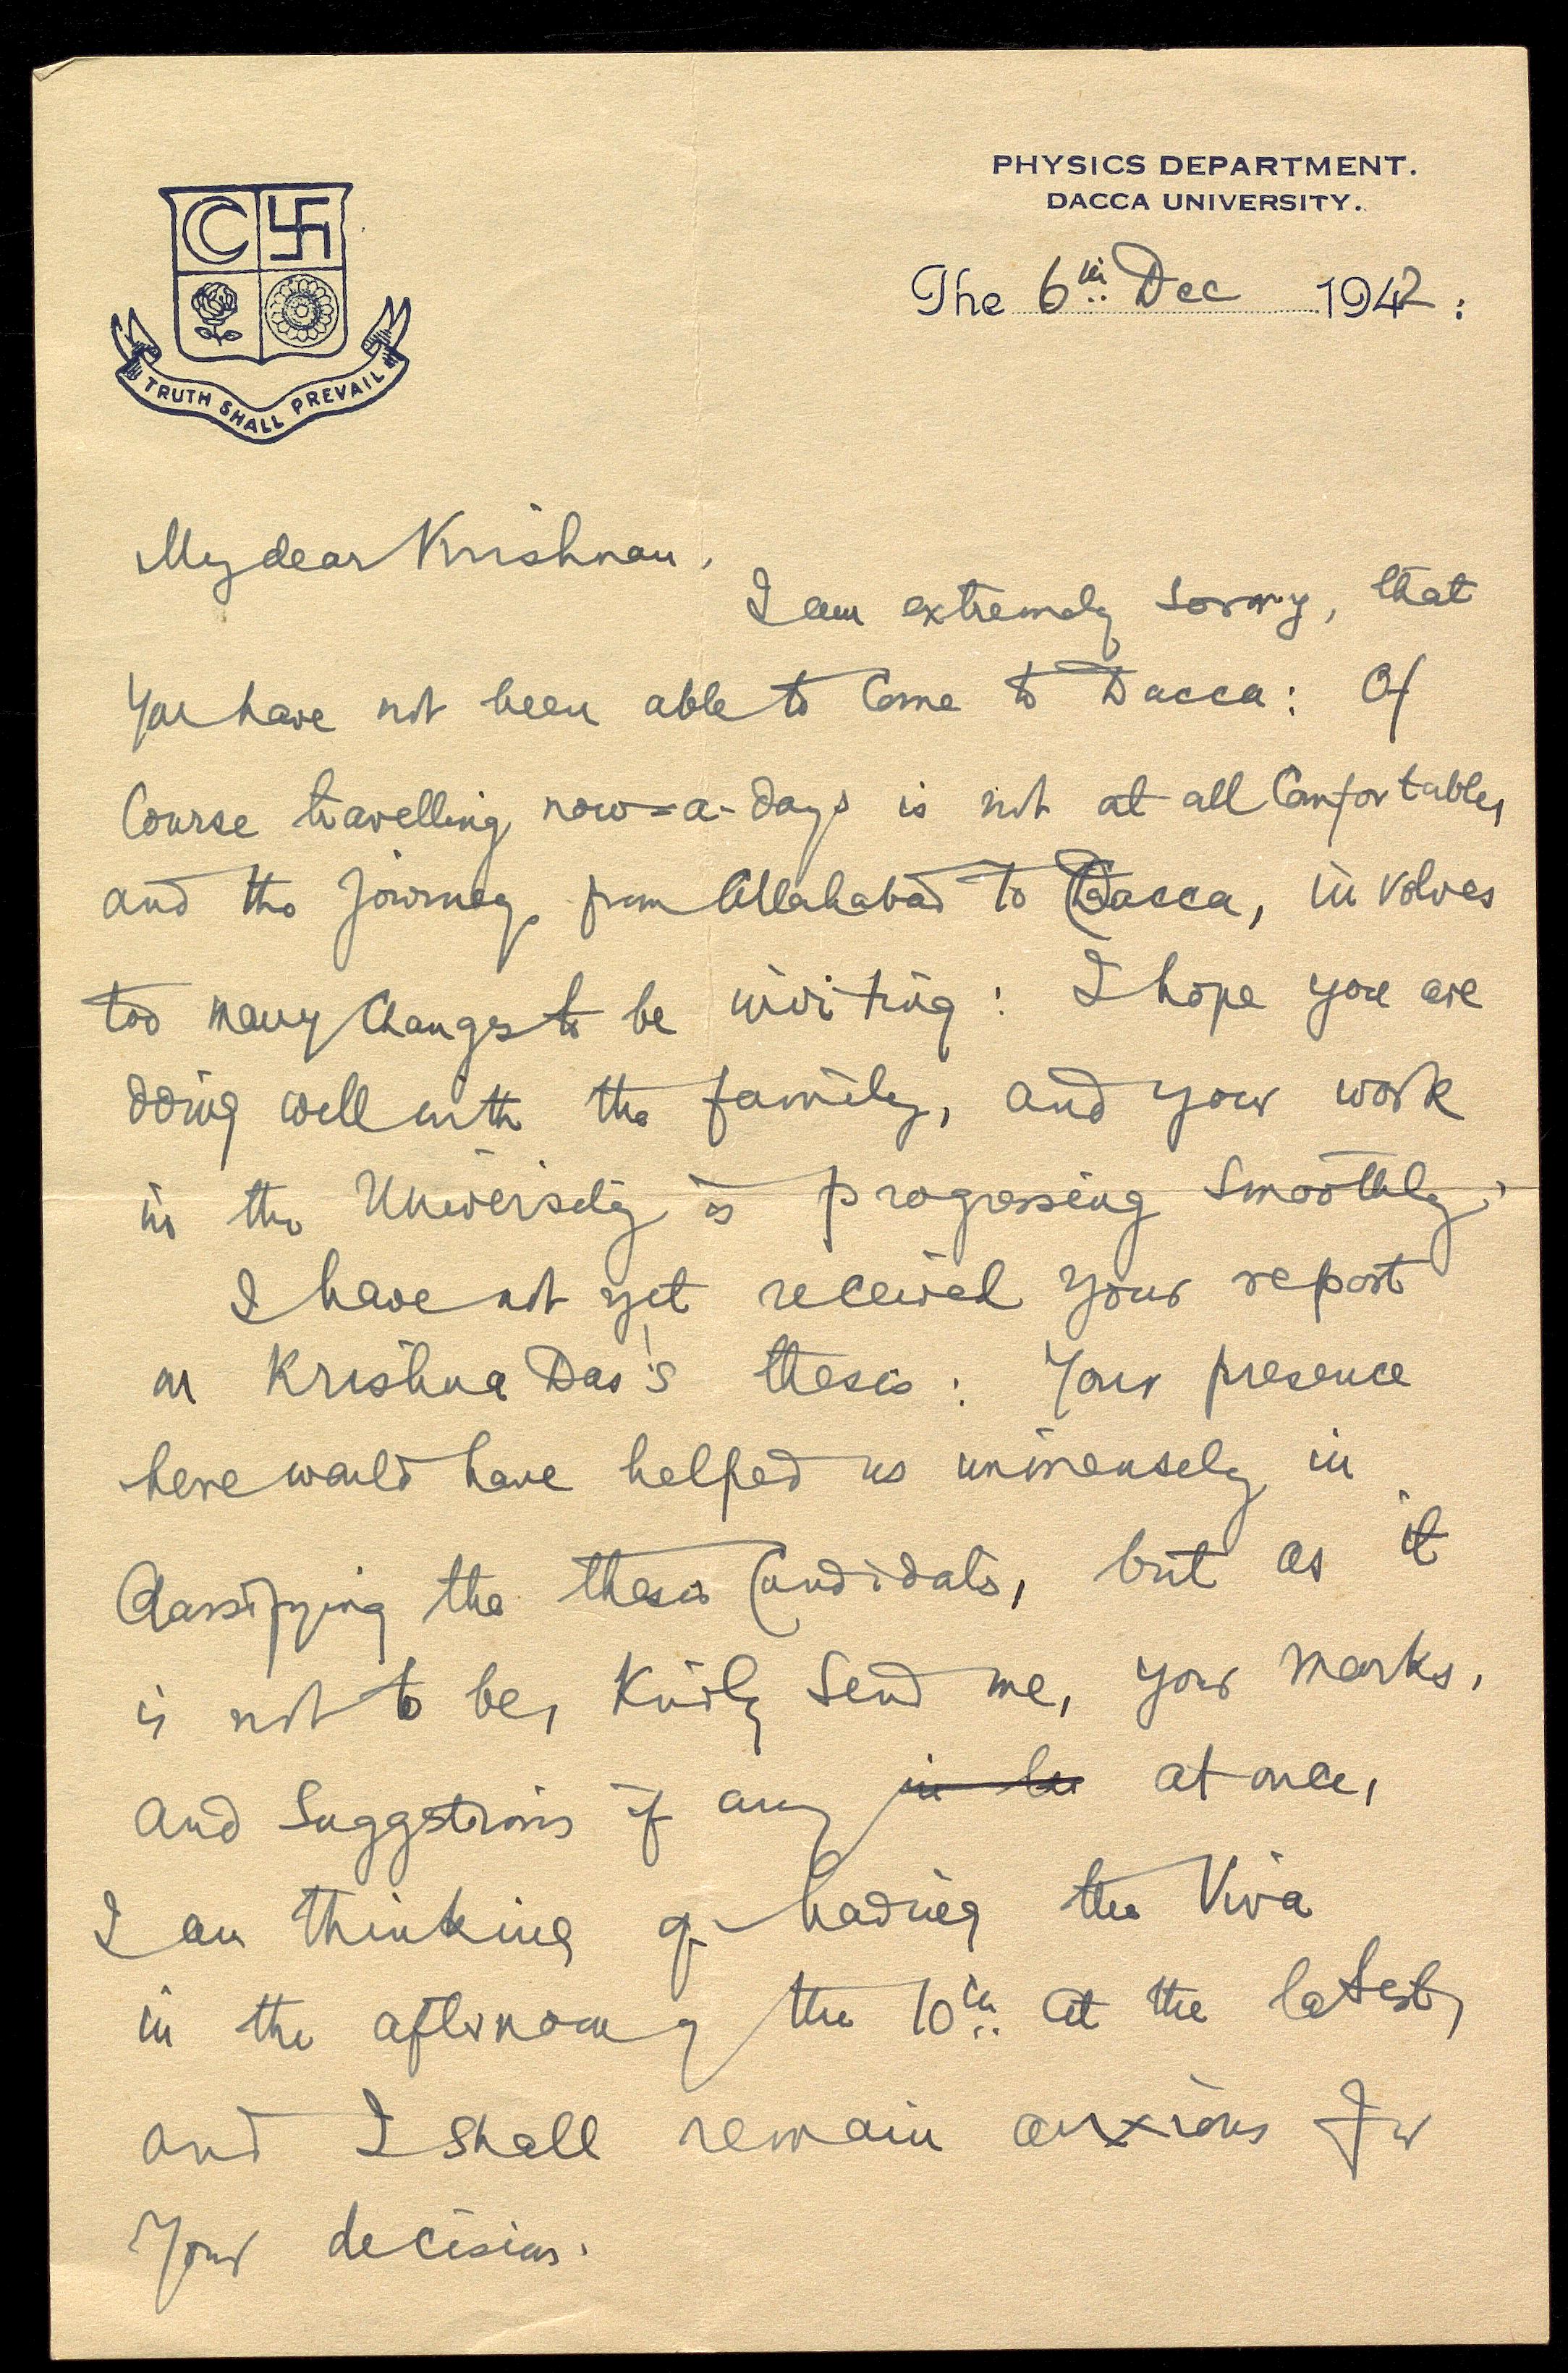 PHYSICS DEPARTMENT.
DACCA UNIVERSITY.
The 6th Dec 1942:
TRUTH SHALL PREVAIL
My dear Krishnan,
I am extremely sorry, that
you have not been able to Come to Dacca: Of
Course travelling now=a-days is not at all Comfortable,
and the journey from Allahabad to Dacca, involves
too many Changes to be inviting: I hope you are
doing well with the family, and your work
in the University is progressing smoothly.
I have not yet received your report
on Krishna Das's thesis: Your presence
here would have helped us immensely in
Classifying the thesis Candidats, but as it
is not to be, Kindly Send me, your marks,
and Suggestions if any at once,
I am thinking of having the Viva
in the afternoon of the 10th at the latest,
and I shall remain anxious for
Your decision.